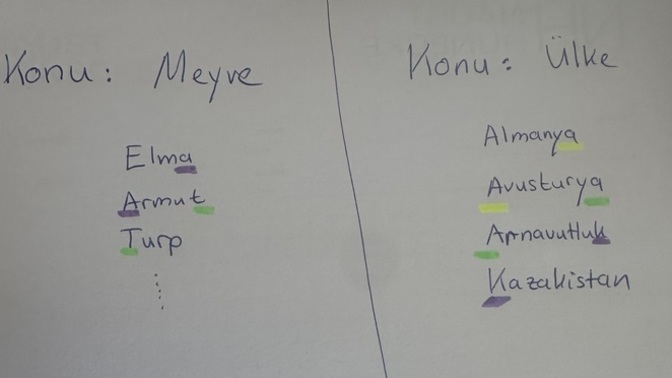 Konu: Meyve
Elma
Armut
Turp
Konu: Ülke
Almanya
Avusturya
Arnavutluk
Kazakistan